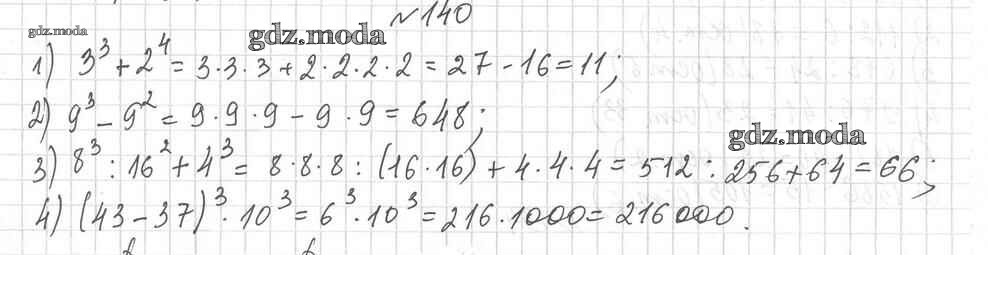 №140
gdz.moda
gdz.moda
1) 3³ + 2⁴ = 3·3·3 + 2·2·2·2 = 27 - 16 = 11;
2) 9³ - 9² = 9·9·9 - 9·9 = 648;
gdz.moda
3) 8³ : 16² + 4³ = 8·8·8 : (16·16) + 4·4·4 = 512 : 256 + 64 = 66;
4) (43 - 37)³ · 10³ = 6³ · 10³ = 216·1000 = 216000.